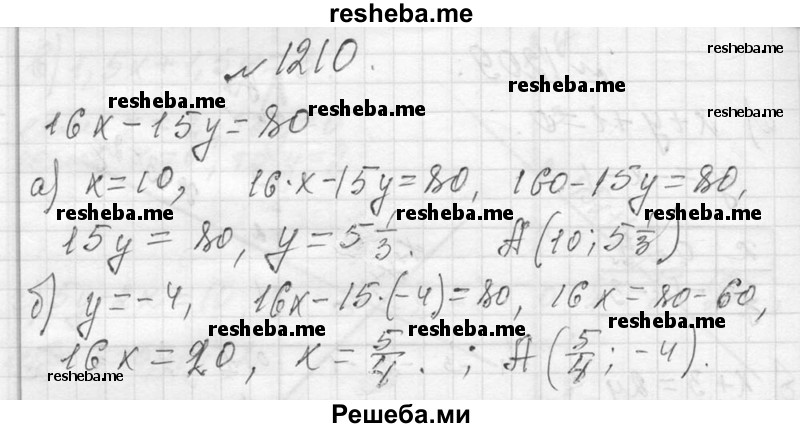 resheba.me
№ 1210.
resheba.me
resheba.me
resheba.me resheba.me resheba.me
16x − 15y = 80
а) x = 10, 16·x − 15y = 80, 160 − 15y = 80,
resheba.me resheba.me resheba.me
15y = 80, y = 5 1/3. A(10; 5 1/3)
б) y = −4, 16x − 15·(−4) = 80, 16x = 80 − 60,
resheba.me resheba.me resheba.me
16x = 20, x = 5/4. ; A(5/4; −4).
resheba.me
Решеба.ми